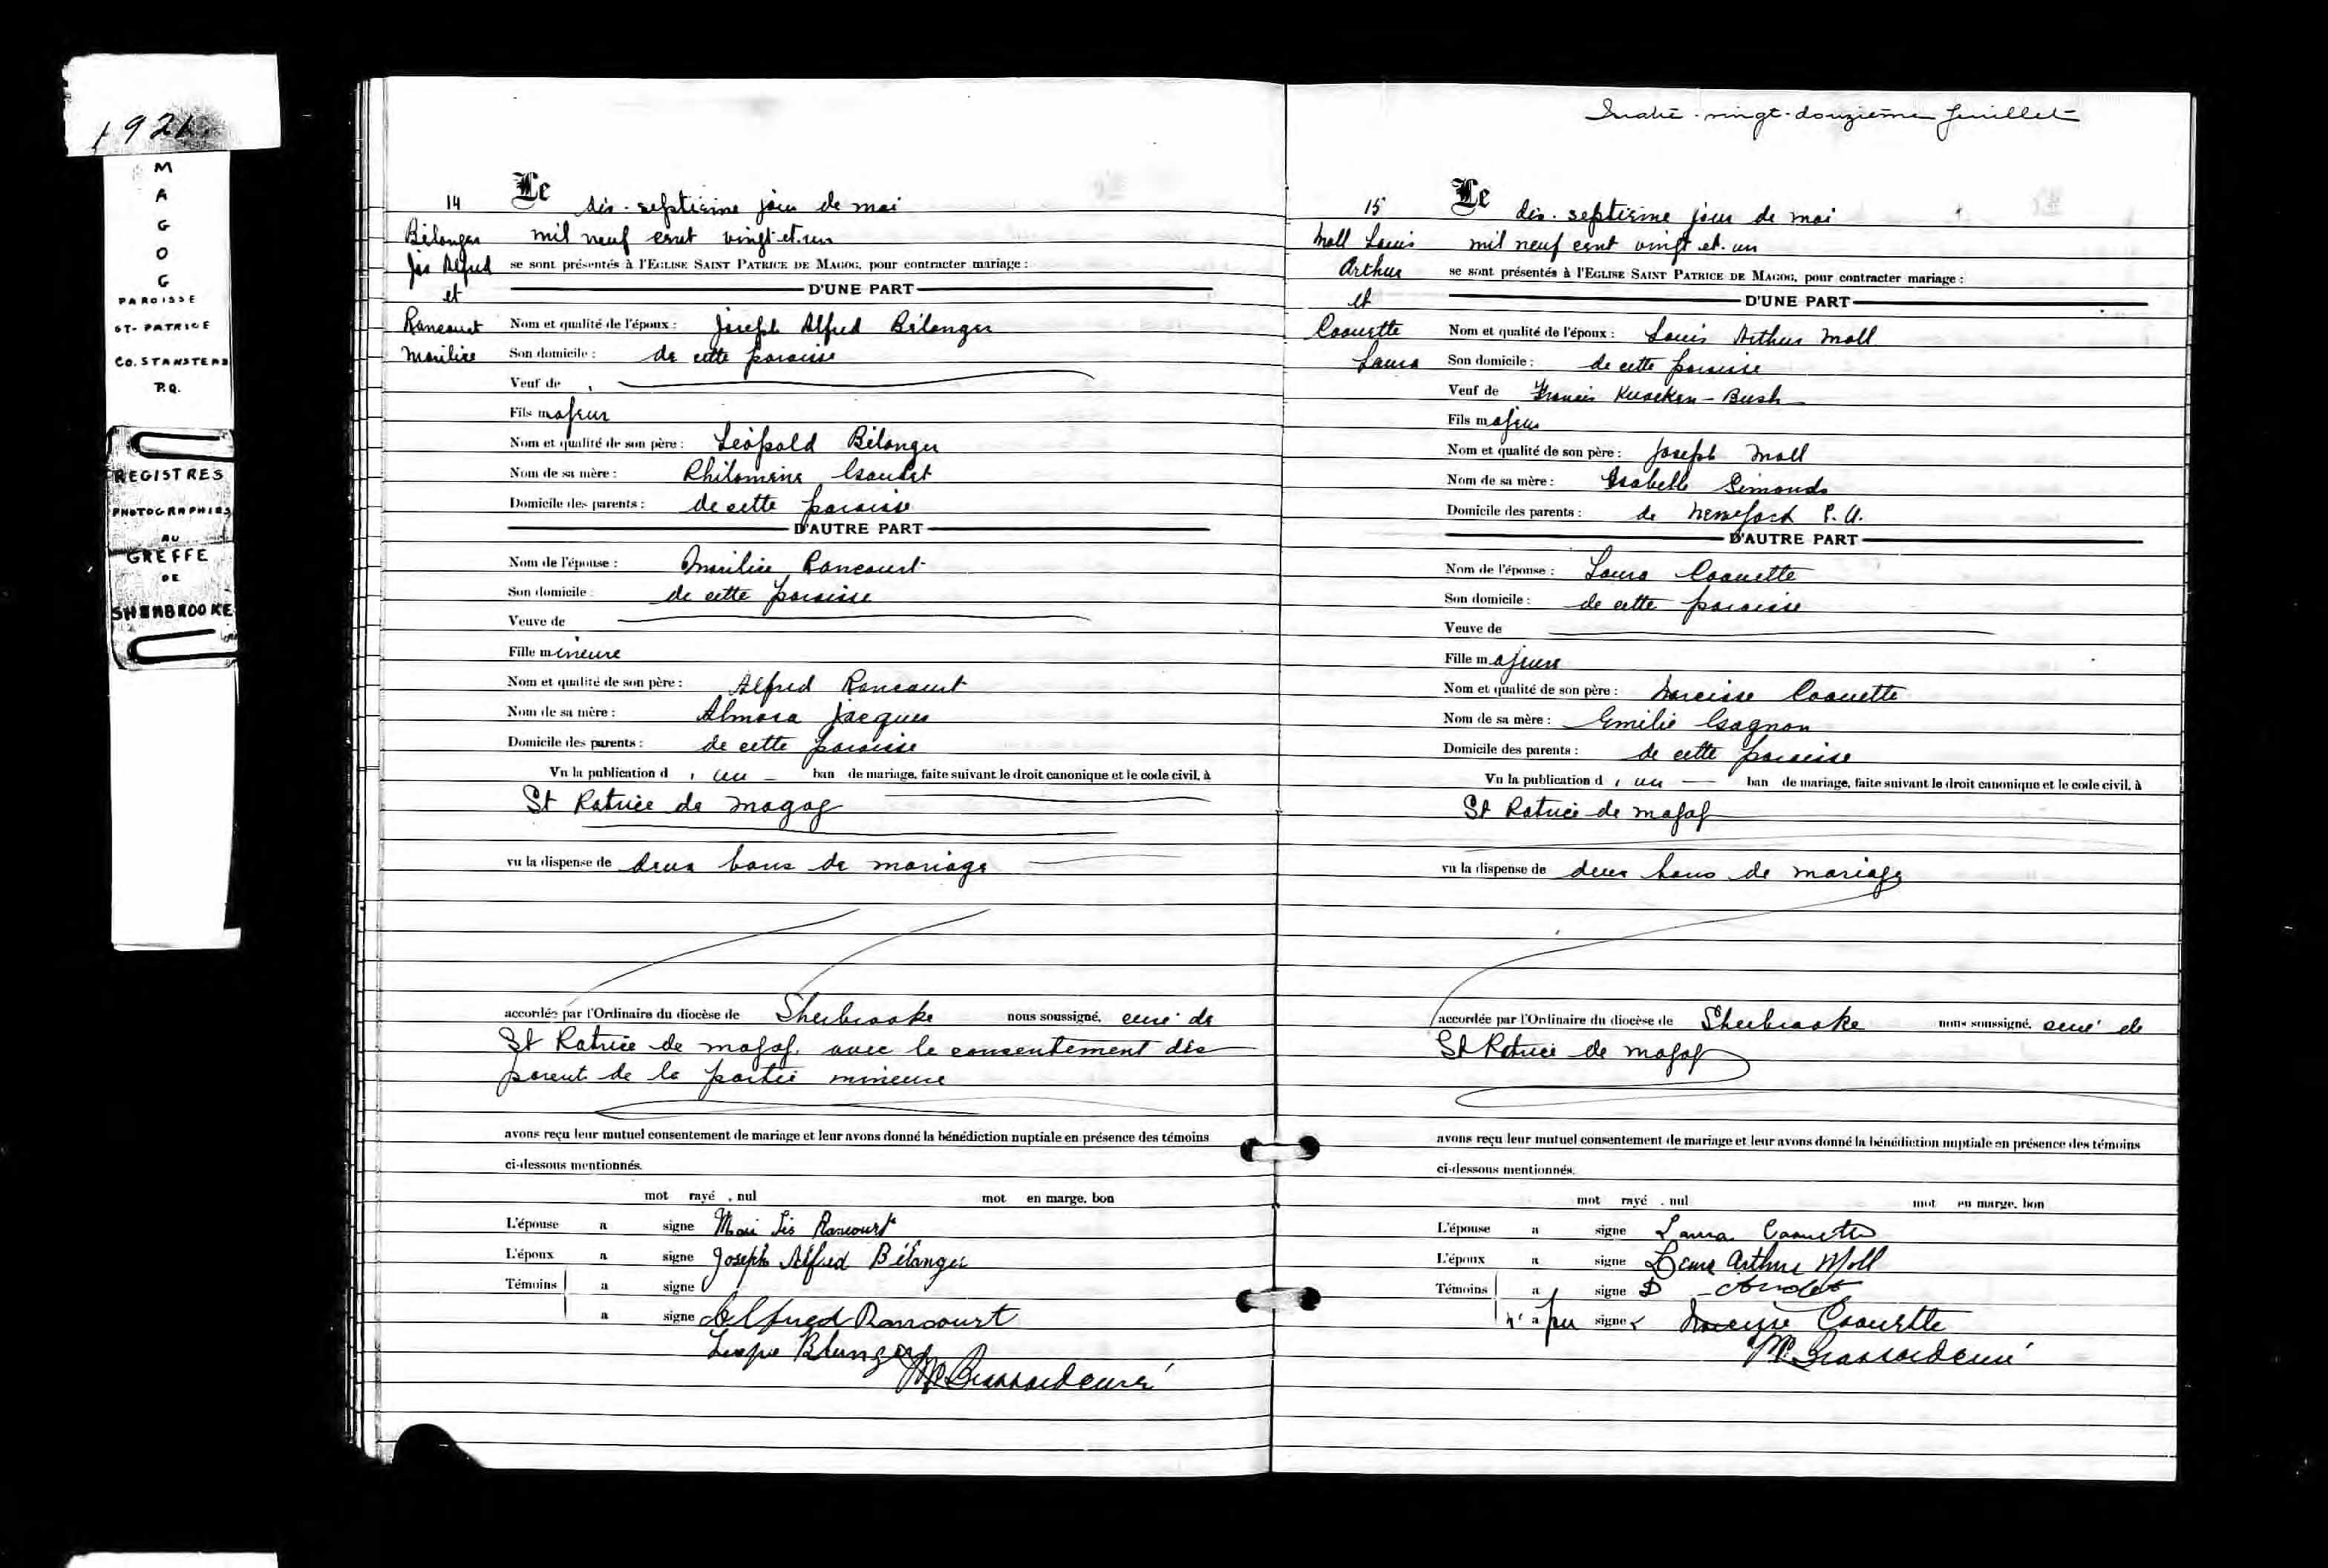 1921
M
A
G
O
G
PAROISSE
ST-PATRICE
CO. STANSTEAD
P.Q.
REGISTRES
PHOTOGRAPHIES
AU
GREFFE
DE
SHERBROOKE
14
Bélanger
Jos Alfred
et
Rancourt
Marilise
Le dix-septième jour de mai
mil neuf cent vingt-et-un
se sont présentés à l'EGLISE SAINT PATRICE DE MAGOG, pour contracter mariage :
D'UNE PART
Nom et qualité de l'époux : Joseph Alfred Bélanger
Son domicile : de cette paroisse
Veuf de
Fils majeur
Nom et qualité de son père : Léopold Bélanger
Nom de sa mère : Philomène Gaudet
Domicile des parents : de cette paroisse
D'AUTRE PART
Nom de l'épouse : Marilise Rancourt
Son domicile : de cette paroisse
Veuve de
Fille mineure
Nom et qualité de son père : Alfred Rancourt
Nom de sa mère : Almosa Jacques
Domicile des parents : de cette paroisse
Vu la publication d'un ban de mariage, faite suivant le droit canonique et le code civil, à
St Patrice de Magog
vu la dispense de deux bans de mariage
accordée par l'Ordinaire du diocèse de Sherbrooke nous soussigné, curé de
St Patrice de Magog, avec le consentement des
parent de la partie mineure
avons reçu leur mutuel consentement de mariage et leur avons donné la bénédiction nuptiale en présence des témoins
ci-dessous mentionnés.
mot rayé , nul mot en marge, bon
L'épouse a signe Mari Lis Rancourt
L'époux a signe Joseph Alfred Bélanger
Témoins a signe
a signe Alfred Rancourt
Belanger
curé
Quatre-vingt-douzième feuillet
15
Moll Louis
Arthur
et
Caouette
Laura
Le dix-septième jour de mai
mil neuf cent vingt et un
se sont présentés à l'EGLISE SAINT PATRICE DE MAGOG, pour contracter mariage :
D'UNE PART
Nom et qualité de l'époux : Louis Arthur Moll
Son domicile : de cette paroisse
Veuf de Francis Kuacken-Bush
Fils majeur
Nom et qualité de son père : Joseph Moll
Nom de sa mère : Isabelle Simonds
Domicile des parents : de
D'AUTRE PART
Nom de l'épouse : Laura Caouette
Son domicile : de cette paroisse
Veuve de
Fille majeure
Nom et qualité de son père : Narcisse Caouette
Nom de sa mère : Emilie Gagnon
Domicile des parents : de cette paroisse
Vu la publication d'un ban de mariage, faite suivant le droit canonique et le code civil, à
St Patrice de Magog
vu la dispense de deux bans de mariage
accordée par l'Ordinaire du diocèse de Sherbrooke nous soussigné, curé de
St Patrice de Magog
avons reçu leur mutuel consentement de mariage et leur avons donné la bénédiction nuptiale en présence des témoins
ci-dessous mentionnés.
mot rayé , nul mot en marge, bon
L'épouse a signe Laura Caouette
L'époux a signe Arthur Moll
Témoins a signe D
n'a pu signer Narcisse Caouette
curé